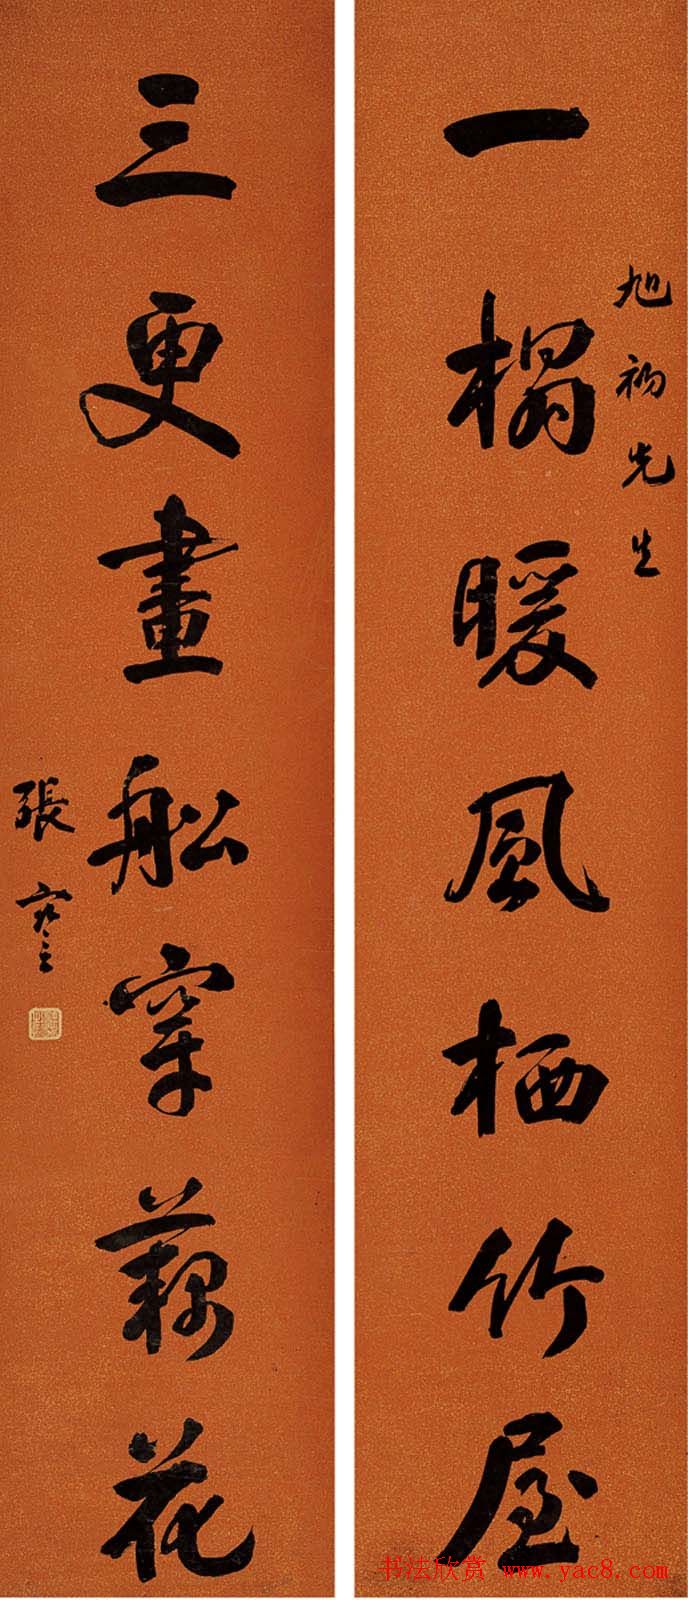 一榻暖風栖竹屋
旭初先生
三更畫舩穿藕花
張寒雲
书法欣赏 www.yac8.com